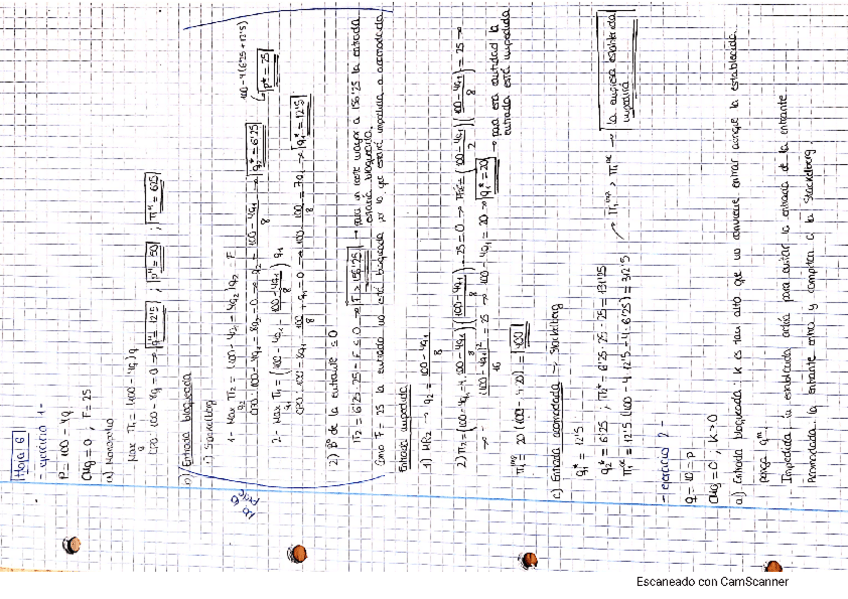 Hoja 6
- ejercicio 1 -
P = 100 - 4q
CMg = 0 ; F = 25
a) Monopolio
Max π1 = (100 - 4q)q
q
CPO: 100 - 8q = 0 → q^m = 12'5 ; p^m = 50 ; π^m = 625
b) Entrada bloqueada
1) Stackelberg
1- Max π2 = (100 - 4q1 - 4q2)q2 - F
q2
CPO: 100 - 4q1 - 8q2 = 0 → q2 = 100 - 4q1 / 8 → q2* = 6'25
100 - 4(6'25 + 12'5)
p* = 25
2- Max π1 = (100 - 4q1 - 100 - 4q1 / 8) q1
q1
2) Bº de la entrante ≤ 0
π2 = 6'25 · 25 - F ≤ 0 → F ≥ 156'25 → para un coste mayor a 156'25 la entrada
estará bloqueada
Como F = 25 la entrada no está bloqueada por lo que estará impedida o acomodada
Entrada impedida
1) MR2 → q2 = 100 - 4q1 / 8
→ (100 - 4q1)² / 16 = 25 → 100 - 4q1 = 20 → q1* = 20 → para esa cantidad la
entrada está impedida
π1^imp = 20 (100 - 4 · 20) = 400
c) Entrada acomodada → Stackelberg
q1* = 12'5
q2* = 6'25 ; π2* = 6'25 · 25 - 25 = 131'25
π1^ac = 12'5 (100 - 4 · 12'5 - 4 · 6'25) = 312'5
π1^imp > π1^ac → la empresa establecida
impedirá
- ejercicio 2 -
Q = 10 - p
CMg = 0 ; K > 0
a) Entrada bloqueada: K es tan alto que no conviene entrar aunque la establecida
ponga q^m
Impedida: la establecida actúa para evitar la entrada de la entrante
Acomodada: la entrante entra y compiten a la Stackelberg
Escaneado con CamScanner